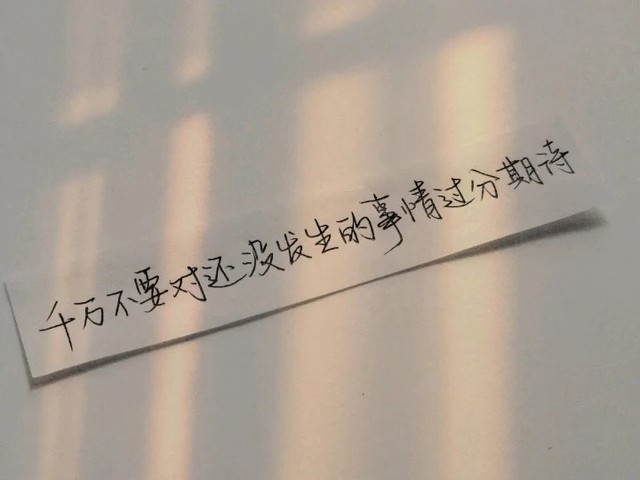 千万不要对还没发生的事情过分期待